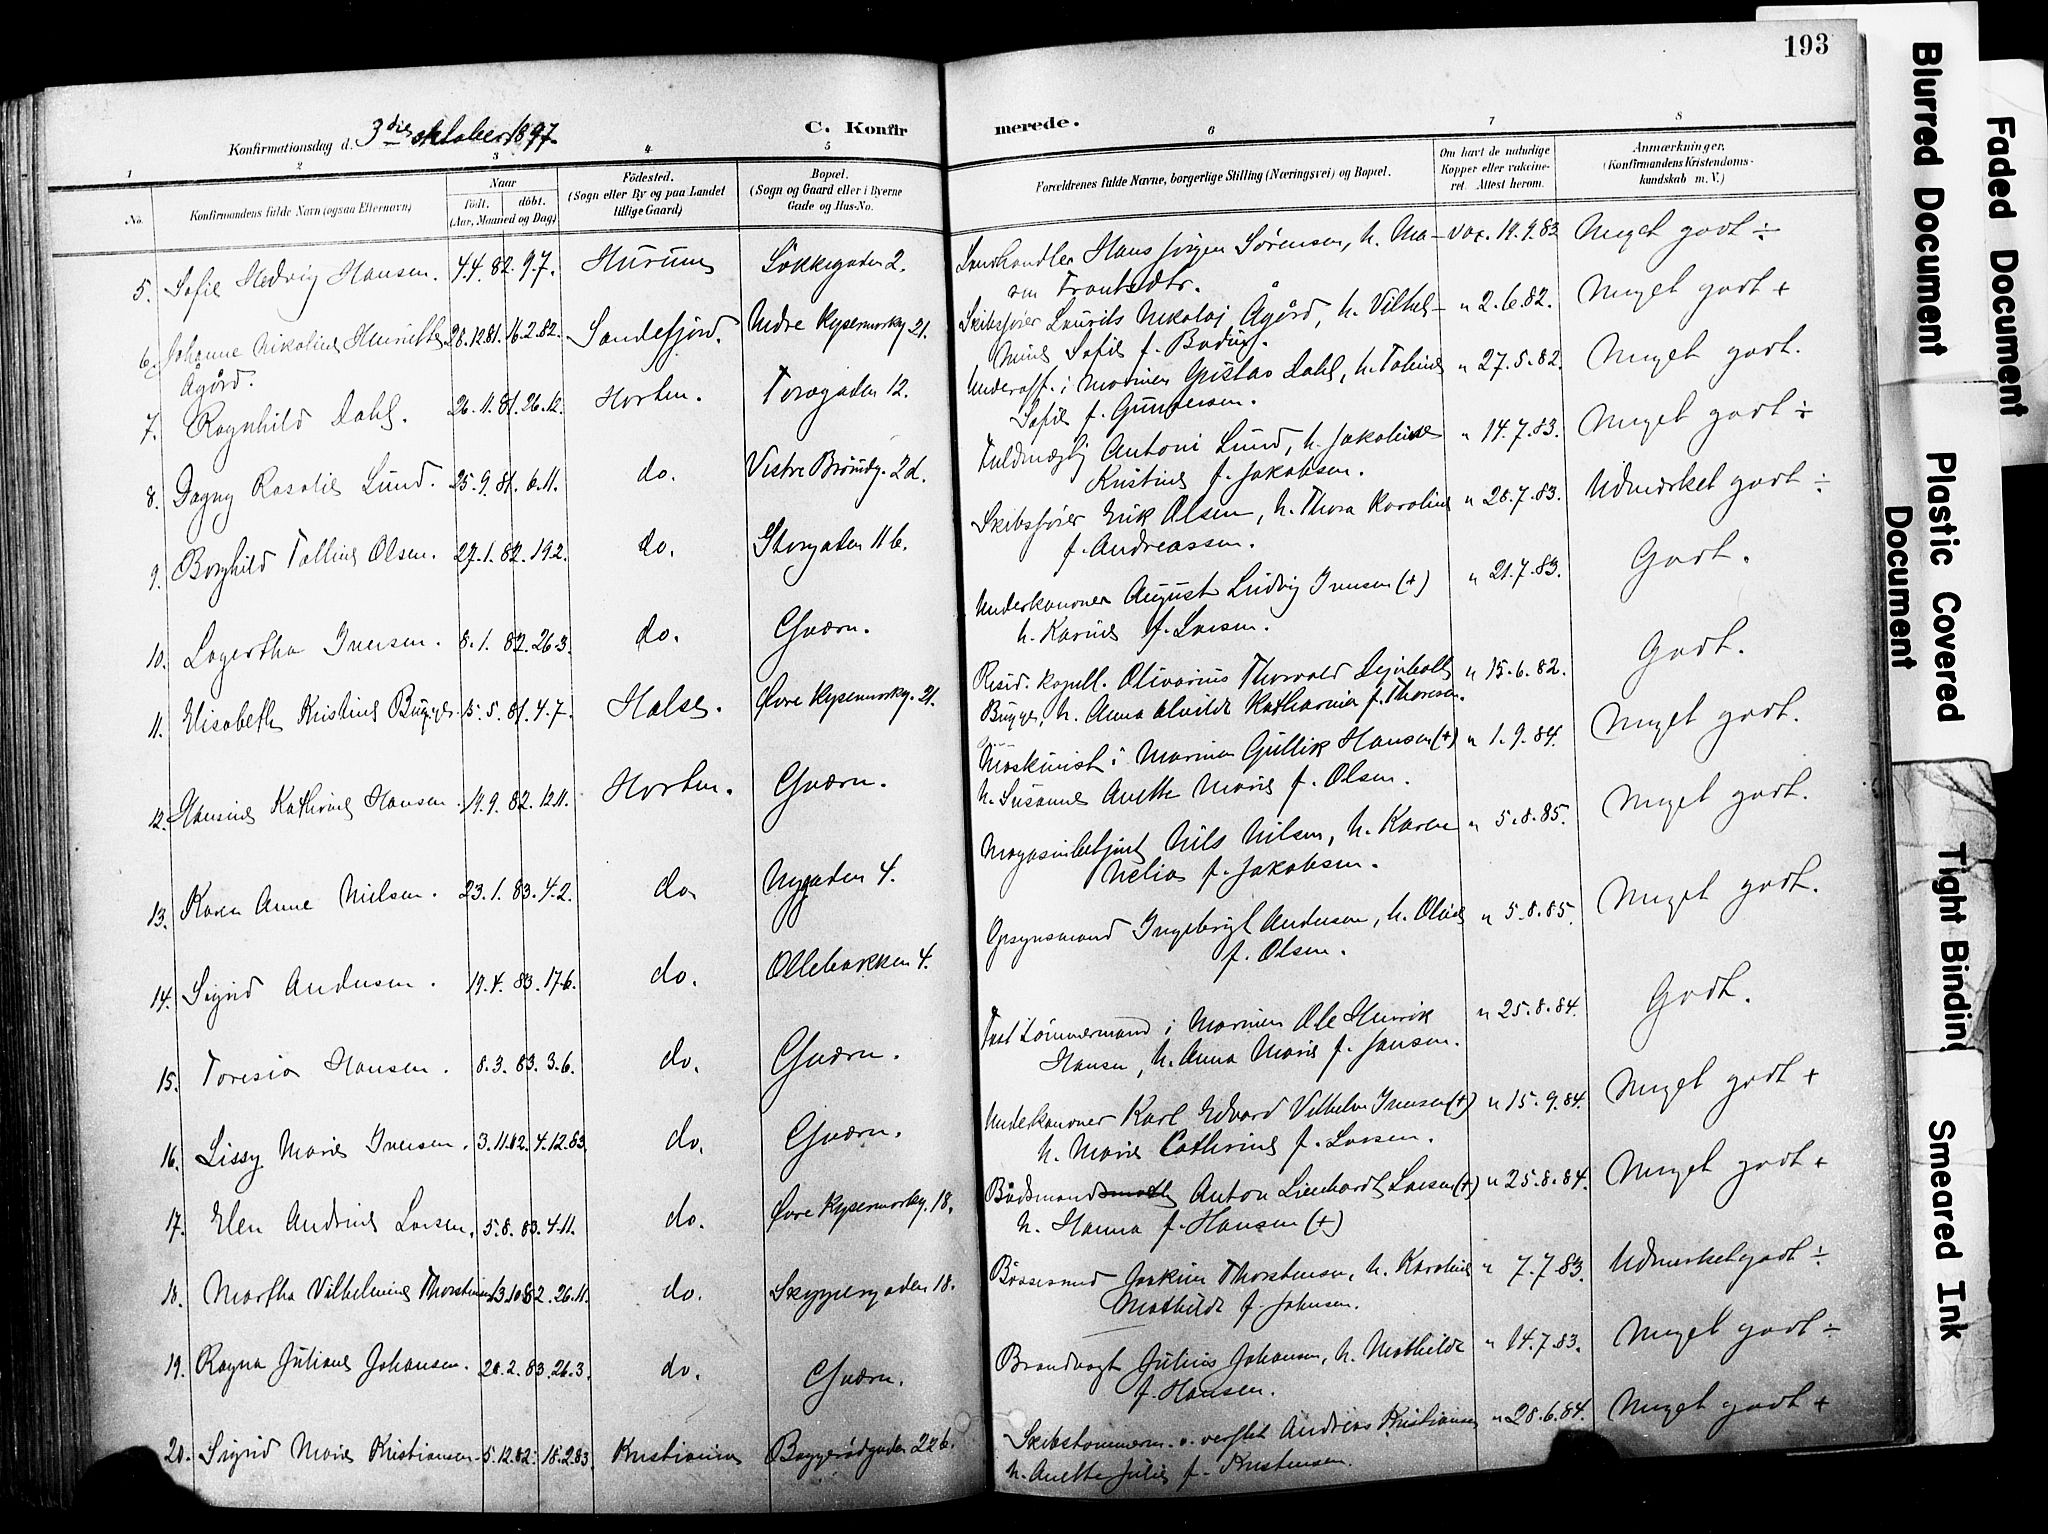 193
Konfirmationsdag d. 3die oktober 1897.
C. Konfirmerede.
1 2 3 4 5 6 7 8
No. Konfirmandens fulde Navn (ogsaa Efternavn) Naar født. døbt. (Aar, Maaned og Dag) Fødested. (Sogn eller By og paa Landet tillige Gaard) Bopæl. (Sogn og Gaard eller i Byerne Gade og Hus-No. Forældrenes fulde Navne, borgerlige Stilling (Næringsvei) og Bopæl. Om havt de naturlige Kopper eller vakcineret. Attest herom. Anmærkninger. (Konfirmandens Kristendomskundskab m. V.)
5. Sofie Hedvig Hansen. 4.4.82. 9.7. Hurum Løkkegaden 2. Hans Jørgen Sørensen, h. Ma- vac. 19.9.83. Meget godt ÷
ren Frantsdtr.
6. Johanne Nikoline Henriette 28.12.81. 16.2.82. Sandefjord. Nedre Kysemorskg. 21. Skibsfører Laurits Nikolai Ågård, h. Vilhel- " 2.6.82. Meget godt +
Ågård. mine Sofie f.
7. Ragnhild Dahl. 26.11.81. 26.12. Horten. Toregaden 12. Underoff. i Marinen Gustav Dahl, h. " 27.5.82. Meget godt.
Sofie f. Gundersen.
8. Dagny Rosalie Lund. 25.9.81. 6.11. do. Vestre Brøndg. 2d. Fuldmægtig Antoni Lund, h. Jakobine " 14.7.83. Meget godt ÷
Kristine f. Jakobsen.
9. Borghild Talline Olsen. 27.1.82. 19.2. do. Storgaden 11 b. Skibsfører Erik Olsen, h. Thora Karoline " 28.7.83. Udmerket godt ÷
f. Andreassen.
10. Lagertha Iversen. 8.1.82. 26.3. do. Gværn. Underkanoner August Ludvig Iversen (+) " 21.7.83. Godt.
h. Karine f. Larsen.
11. Elisabeth Kristine Bugge. 15.5.81. 4.7. Halse. Øvre Kysemorskg. 21. Resid. kapell. Olivarius Thorvald Dejnboll " 15.6.82. Godt.
Bugge, h. Anna Alvilde Katharina f. Thoresen.
12. Hansine Kathrine Hansen. 19.9.82. 12.11. Horten. Gværn. Maskinist i Marinen Gullik Hansen (+) " 1.9.84. Meget godt.
h. Susanne Anette Marie f. Olsen.
13. Karen Anne Nielsen. 23.1.83. 4.2. do. Nygaden 4. Magasinbetjent Nils Nilsen, h. Karen " 5.8.85. Meget godt.
Nelia f. Jakobsen.
14. Sigrid Andersen. 19.4.83. 17.6. do. Ollebakken 4. Opsynsmand Ingebrigt Andersen, h. Oline " 5.8.85. Meget godt.
f. Olsen.
15. Toresia Hansen. 8.3.83. 3.6. do. Gværn. Fast Tømmermand i Marinen Ole Henrik " 25.8.84. Godt.
Hansen, h. Anna Marie f. Jansen.
16. Lissy Marie Iversen. 3.11.82. 4.12.83. do. Gværn. Underkanoner Karl Edvard Vilhelm Iversen (+) " 15.9.84. Meget godt +
h. Marie Cathrine f. Larsen.
17. Elen Andrine Larsen. 5.8.83. 4.11. do. Øvre Kysemorskg. 18. Bådsmand Anton Lienhardt Larsen (+) " 25.8.84. Meget godt +
h. Hanna f. Hansen (+)
18. Martha Vilhelmine Thorstensen 13.10.82. 26.11. do. Skippergaden 18. Bøssesmed Joakim Thorstensen, h. Karoline " 7.7.83. Udmerket godt ÷
Mathilde f. Johnsen.
19. Ragna Juliane Johansen. 20.2.83. 26.3. do. Gværn. Brandvagt Julius Johansen, h. Mathilde " 14.7.83. Meget godt ÷
f. Hansen.
20. Sigrid Marie Kristiansen. 5.12.82. 18.2.83. Kristiania Baggerødgaden 22b. Skibstømmerm. v. verftet Andreas Kristiansen " 28.6.84. Meget godt +
h. Anette Julie f. Kristensen.
Faded Document
Blurred Document
Plastic Covered Document
Tight Binding
Smeared Ink